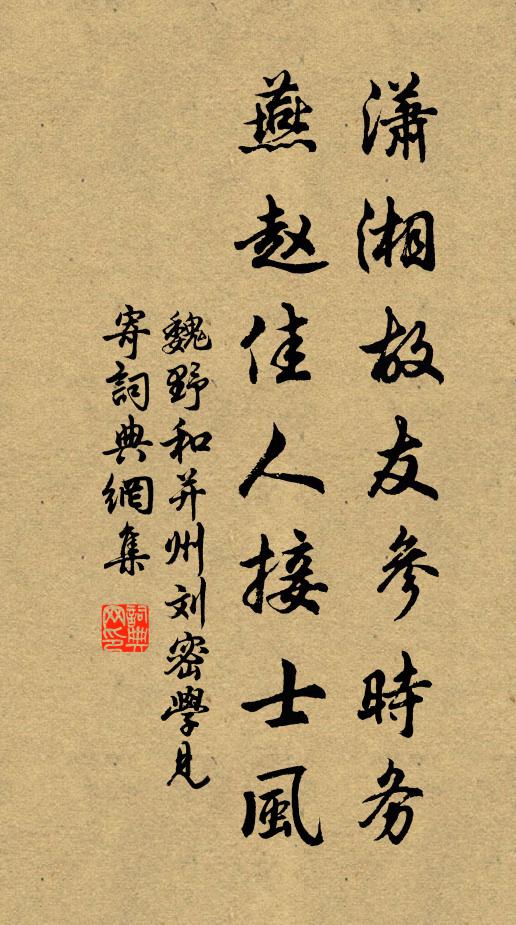 瀟湘故友參時务
燕赵佳人接士風
魏野和并州刘密學見
寄詞典網集
詞典网印